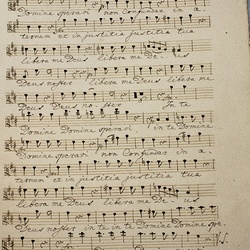 Domine speravi non Confundar in ae
ternum et in justitia justitia tua
libera me Deus libera me De us
Deus noster libera me Deus libera me
Deus Deus noster In te
Domine Domine speravi in te Domine
Domine speravi non Confundar in ae
ternum et in justitia justitia tua
libera me Deus libera me De us
Deus noster in te in te Domine Domine spe.